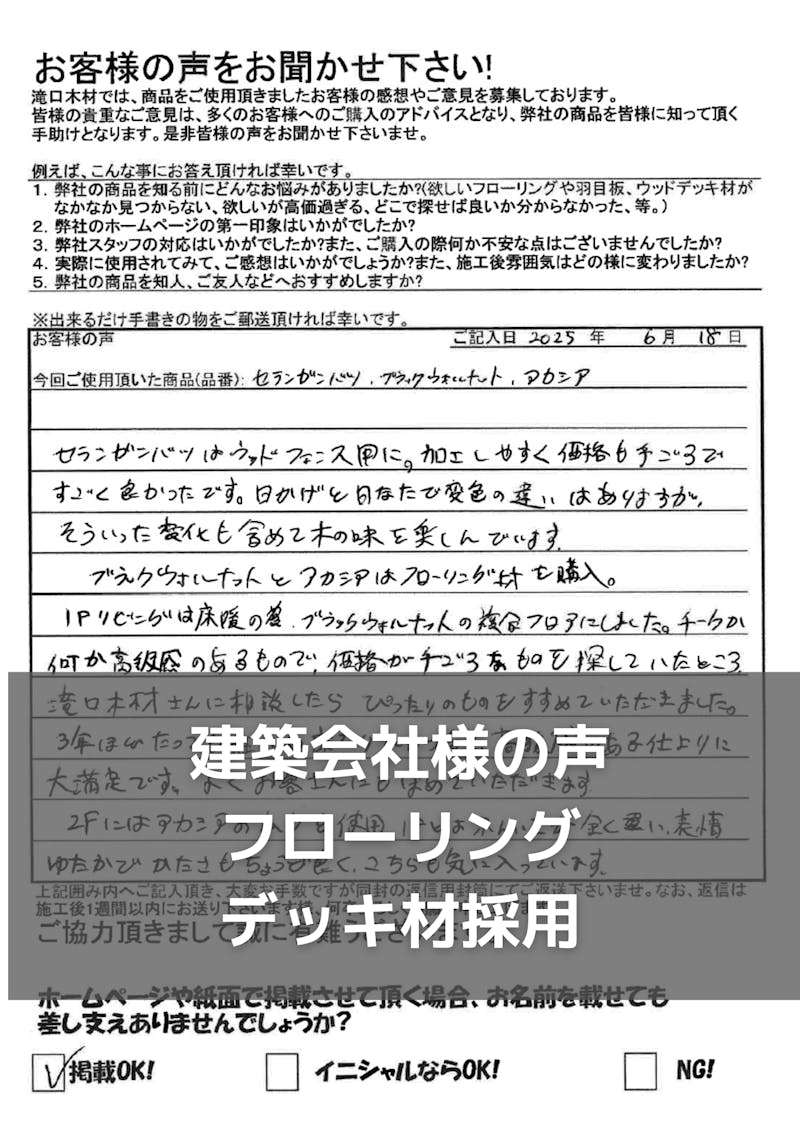 お客様の声をお聞かせ下さい!
滝口木材では、商品をご使用頂きましたお客様の感想やご意見を募集しております。
皆様の貴重なご意見は、多くのお客様へのご購入のアドバイスとなり、弊社の商品を皆様に知って頂く
手助けとなります。是非皆様の声をお聞かせ下さいませ。
例えば、こんな事にお答え頂ければ幸いです。
1. 弊社の商品を知る前にどんなお悩みがありましたか?(欲しいフローリングや羽目板、ウッドデッキ材が
なかなか見つからない、欲しいが高価過ぎる、どこで探せば良いか分からなかった、等。)
2. 弊社のホームページの第一印象はいかがでしたか?
3. 弊社スタッフの対応はいかがでしたか?また、ご購入の際何か不安な点はございませんでしたか?
4. 実際に使用されてみて、ご感想はいかがでしょうか?また、施工後雰囲気はどの様に変わりましたか?
5. 弊社の商品を知人、ご友人などへおすすめしますか?
※出来るだけ手書きの物をご郵送頂ければ幸いです。
お客様の声 ご記入日 2025 年 6 月 18 日
今回ご使用頂いた商品(品番): セランガンバツ、ブラックウォルナット、アカシア
セランガンバツはウッドフェンス用に。加工しやすく価格も手ごろで
すごく良かったです。日かげと日なたで変色の違いはありますが、
そういった変化も含めて木の味を楽しんでいます。
ブラックウォルナットとアカシアはフローリング材を購入。
1Fリビングは床暖の為、ブラックウォルナットの複合フロアにしました。チークか
何か高級感のあるもので、価格が手ごろなものを探していたところ、
滝口木材さんに相談したら ぴったりのものをすすめていただきました。
3年ほどたって ある仕上りに
大満足です。よくお客さんにもほめていただきます。
2Fにはアカシアの を使用。 全く違い、表情
ゆたかで かたさもちょうど良く、こちらも気に入っています。
上記囲み内へご記入頂き、大変お手数ですが同封の返信用封筒にてご返送下さいませ。なお、返信は
施工後1週間以内にお送り下さいます様、
ご協力頂きまして誠に有難うございます
建築会社様の声
フローリング
デッキ材採用
ホームページや紙面で掲載させて頂く場合、お名前を載せても
差し支えありませんでしょうか?
掲載OK! イニシャルならOK! NG!